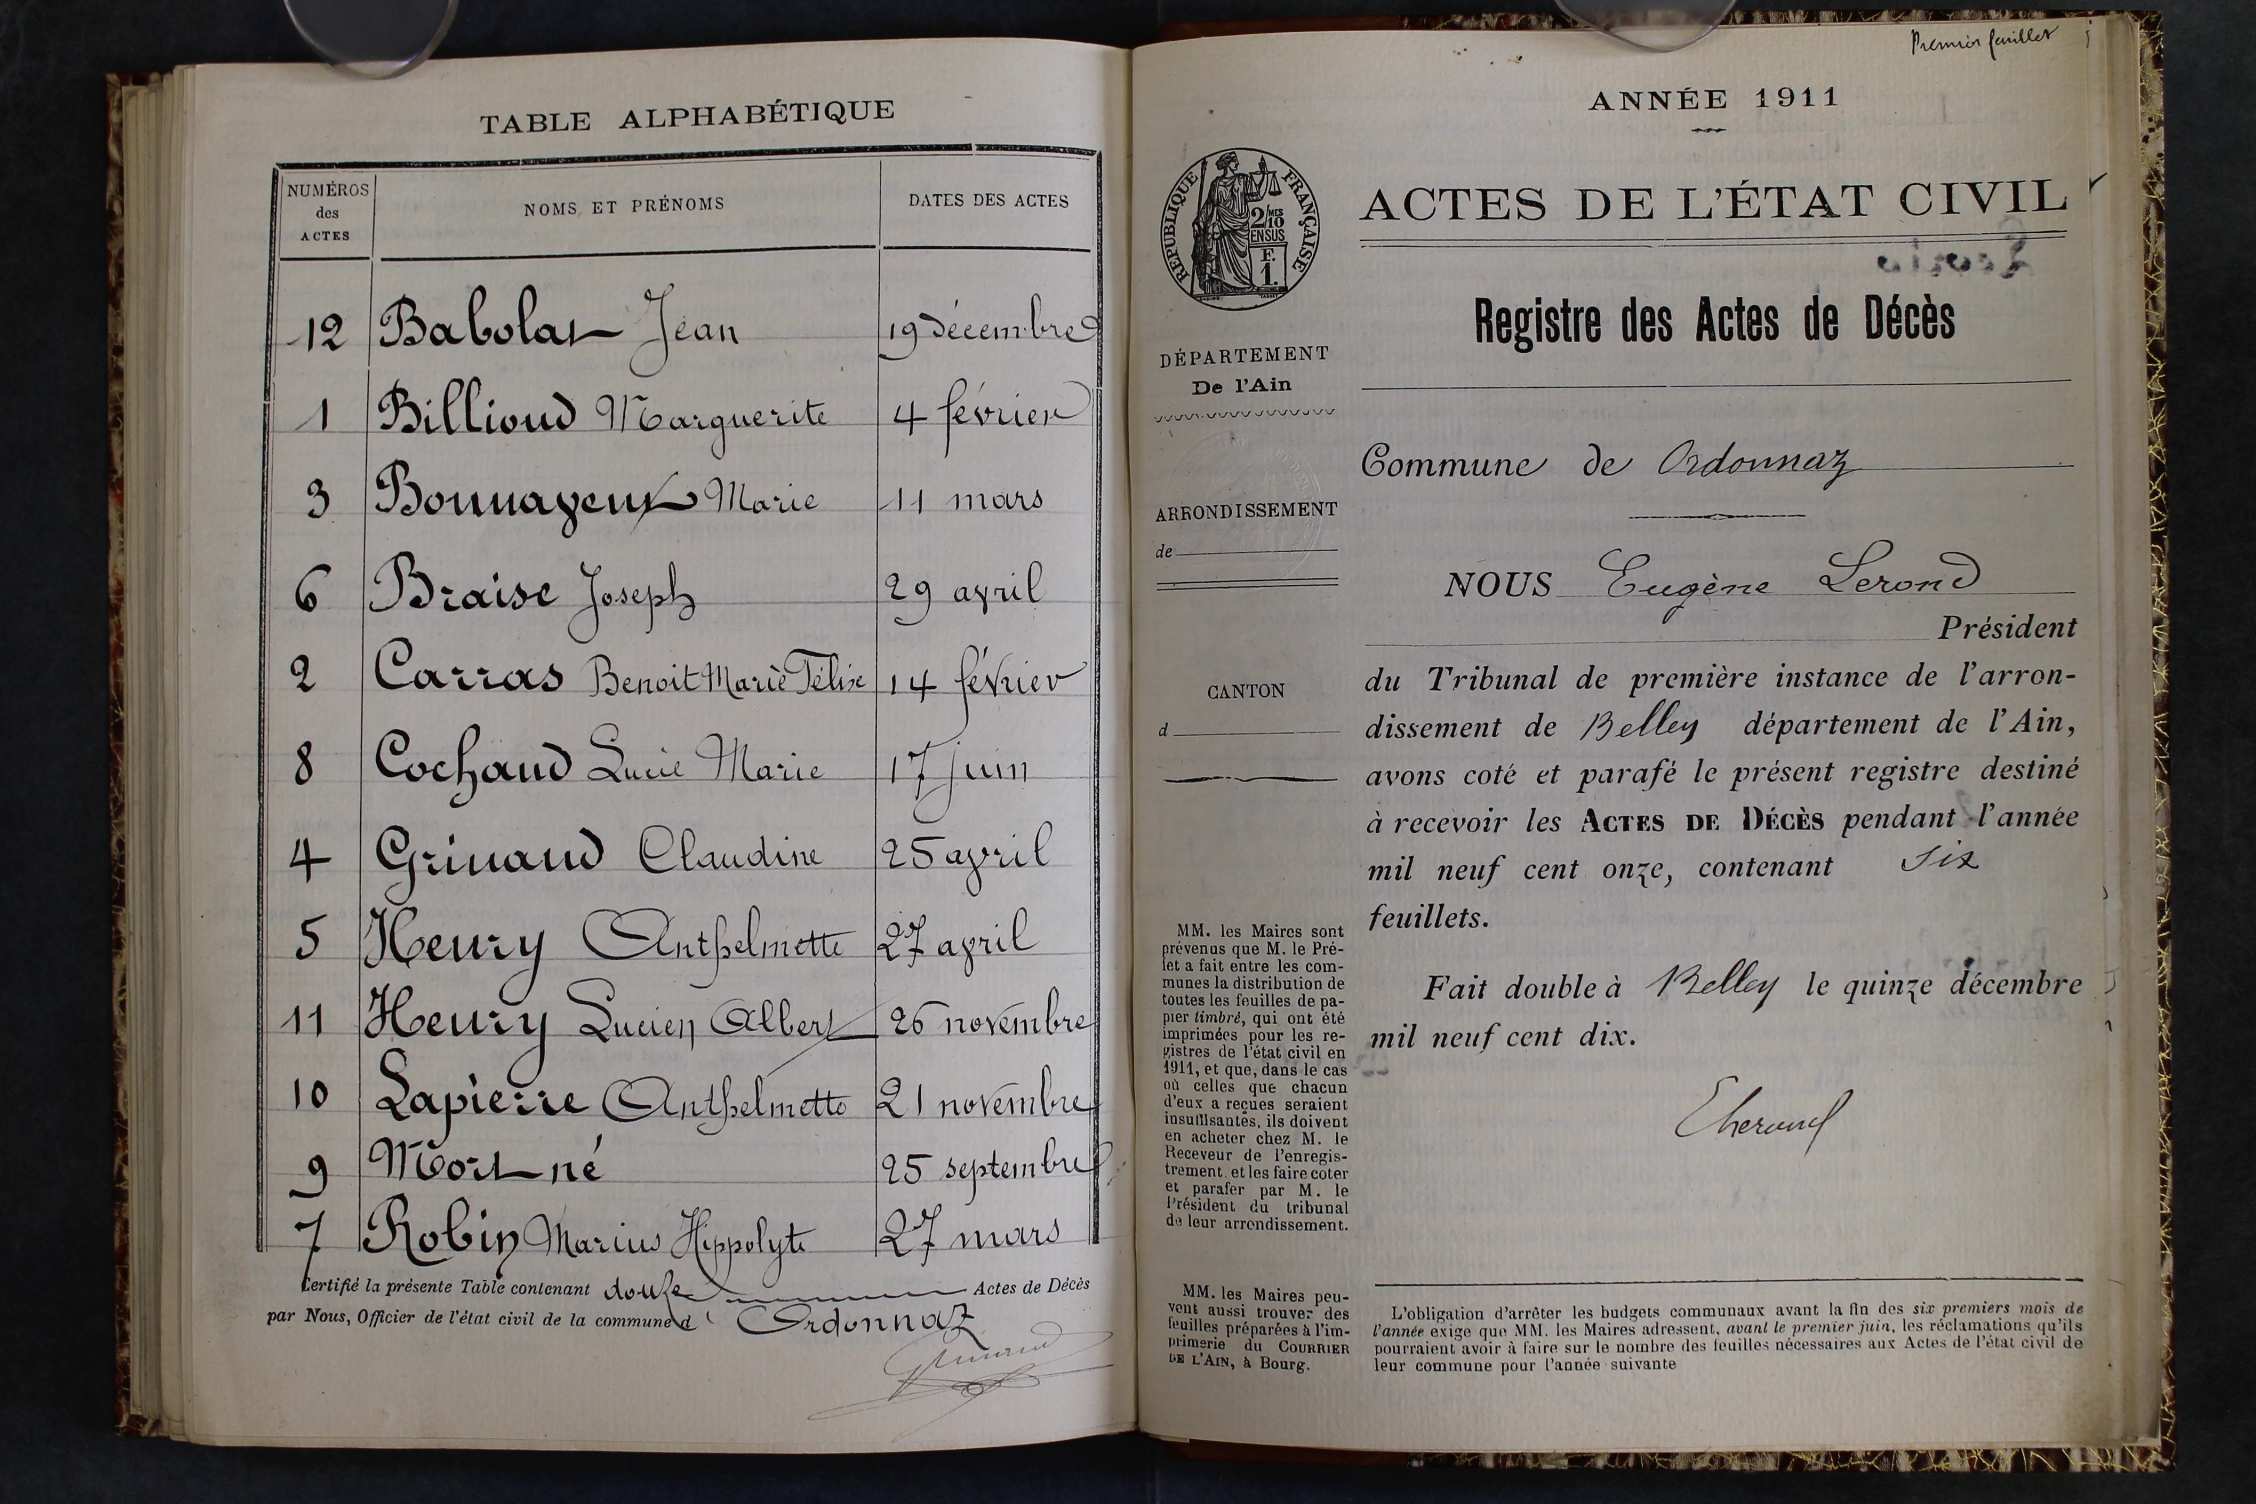 TABLE ALPHABÉTIQUE
NUMÉROS
des
ACTES
NOMS ET PRÉNOMS
DATES DES ACTES
12 Babolat Jean 19 décembre
1 Billioud Marguerite 4 février
3 Bonnayeux Marie 11 mars
6 Braise Joseph 29 avril
2 Carras Benoit Marie Félix 14 février
8 Cochaud Lucie Marie 17 juin
4 Grinand Claudine 25 avril
5 Henry Anthelmette 27 avril
11 Henry Lucien Albert 26 novembre
10 Lapierre Anthelmette 21 novembre
9 Mort né 25 septembre
7 Robin Marius Hippolyte 27 mars
Certifié la présente Table contenant douze Actes de Décès
par Nous, Officier de l'état civil de la commune d' Ordonnaz
Grinand
Premier feuillet
ANNÉE 1911
RÉPUBLIQUE FRANÇAISE
2/10 MES
EN SUS
F.
1.
ACTES DE L'ÉTAT CIVIL
Registre des Actes de Décès
DÉPARTEMENT
De l'Ain
ARRONDISSEMENT
de
CANTON
d
Commune de Ordonnaz
NOUS Eugène Lerond
Président
du Tribunal de première instance de l'arron-
dissement de Belley département de l'Ain,
avons coté et parafé le présent registre destiné
à recevoir les ACTES DE DÉCÈS pendant l'année
mil neuf cent onze, contenant six
feuillets.
Fait double à Belley le quinze décembre
mil neuf cent dix.
MM. les Maires sont
prévenus que M. le Pré-
fet a fait entre les com-
munes la distribution de
toutes les feuilles de pa-
pier timbré, qui ont été
imprimées pour les re-
gistres de l'état civil en
1911, et que, dans le cas
où celles que chacun
d'eux a reçues seraient
insuffisantes, ils doivent
en acheter chez M. le
Receveur de l'enregis-
trement et les faire coter
et parafer par M. le
Président du tribunal
de leur arrondissement.
MM. les Maires peu-
vent aussi trouver des
feuilles préparées à l'im-
primerie du COURRIER
DE L'AIN, à Bourg.
L'obligation d'arrêter les budgets communaux avant la fin des six premiers mois de
l'année exige que MM. les Maires adressent, avant le premier juin, les réclamations qu'ils
pourraient avoir à faire sur le nombre des feuilles nécessaires aux Actes de l'état civil de
leur commune pour l'année suivante